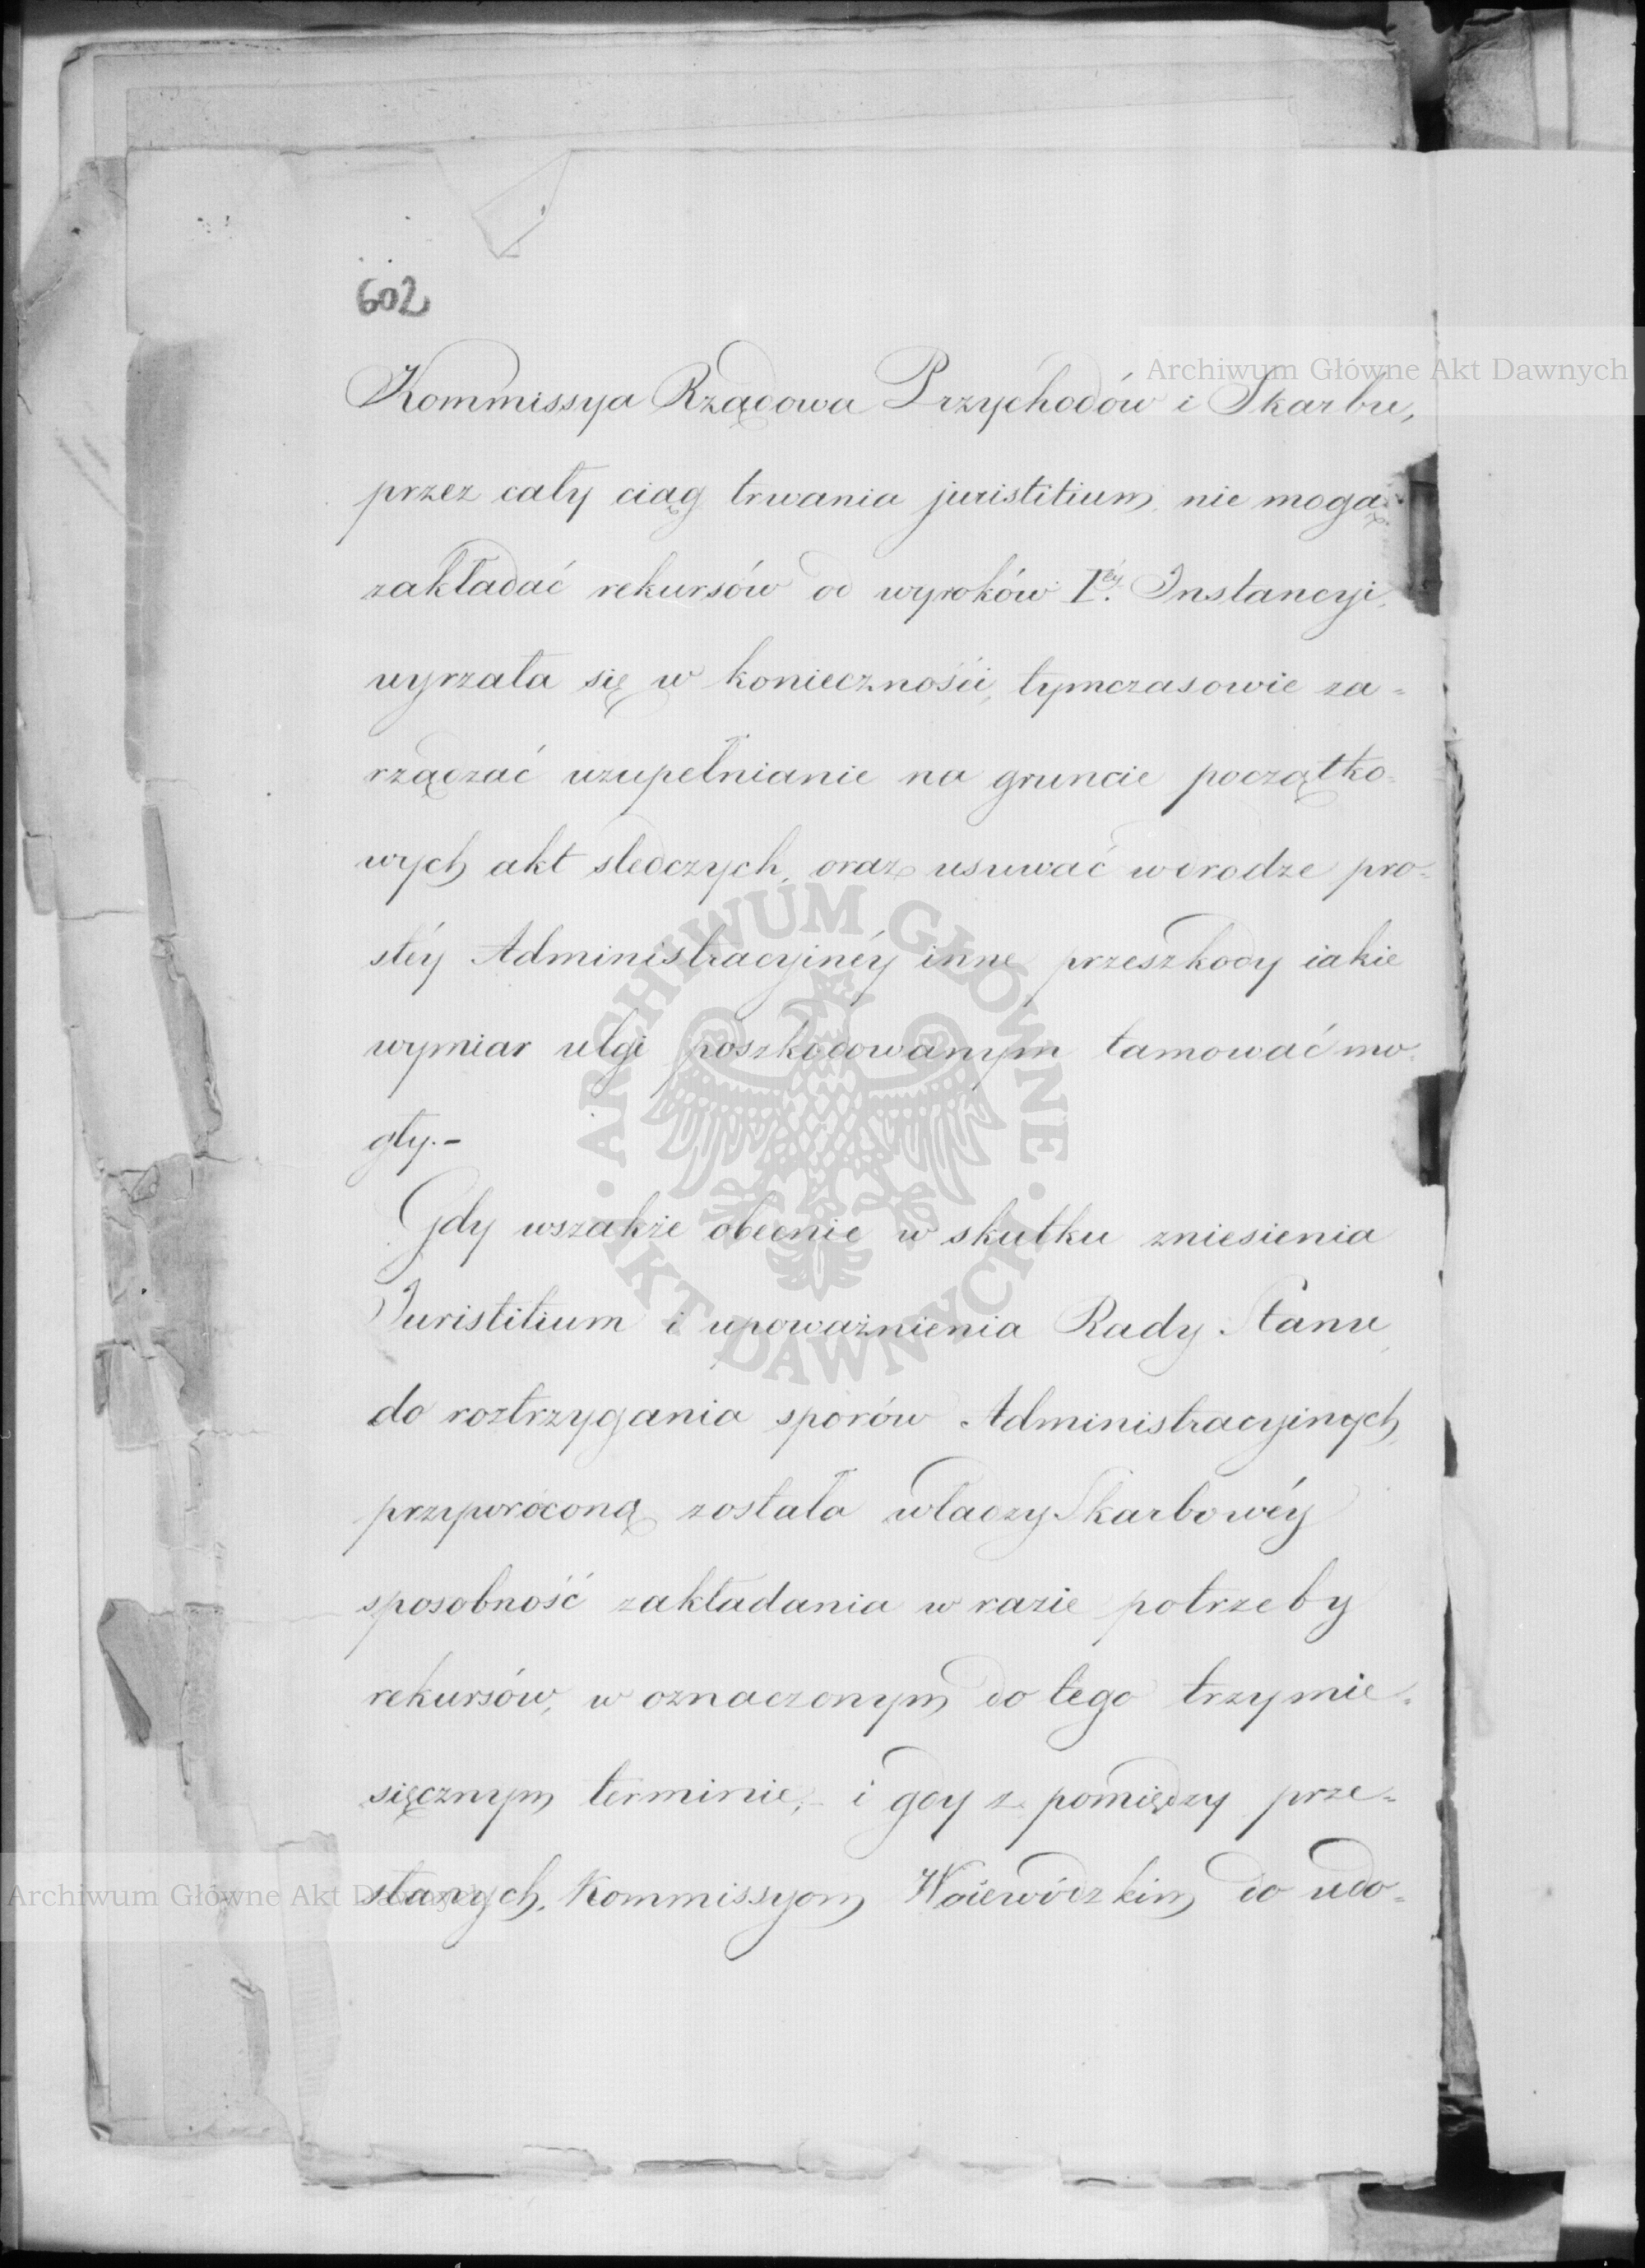 602
Kommissya Rządowa Przychodów i Skarbu,
przez cały ciąg trwania juristitium, nie mogąc
zakładać rekursów od wyroków I.éy Instancyi,
uyrzała się w konieczności, tymczasowie za=
rządzać uzupełnianie na gruncie początko=
wych akt sledczych, oraz usuwać w drodze pro=
stéy Administracyinéy inne przeszkody iakie
wymiar ulgi poszkodowanym tamować mo=
gły.-
Gdy wszakże obecnie w skutku zniesienia
Juristitium i upoważnienia Rady Stanu,
do roztrzygania sporów Administracyinych,
przywróconą została władzy Skarbowéy
sposobność zakładania w razie potrzeby
rekursów, w oznaczonym do tego trzymie=
sięcznym terminie, i gdy z pomiędzy prze=
słanych, Kommissyom Woiewódzkim do udo=
Archiwum Główne Akt Dawnych
ARCHIWUM GŁÓWNE AKT DAWNYCH
Archiwum Główne Akt Dawnych